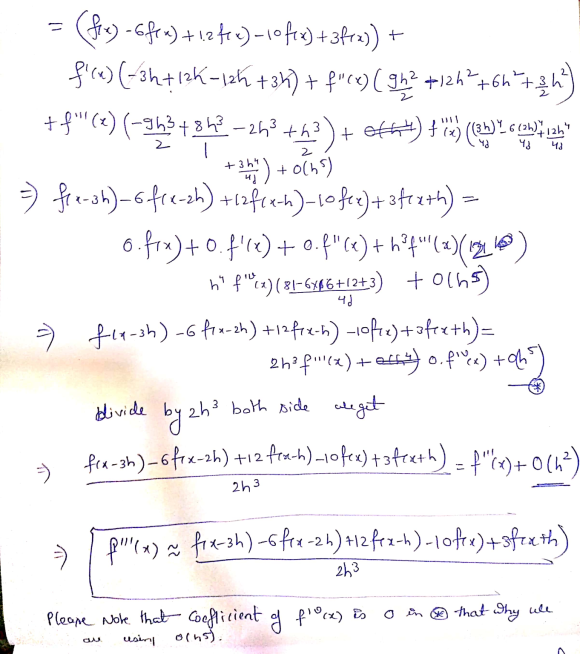 = (f(x) - 6f(x) + 12 f(x) - 10 f(x) + 3f(x)) +
f'(x) (-3h + 12h - 12h + 3h) + f''(x) ( 9h²/2 + 12h² + 6h² + 3/2 h²)
+ f'''(x) (-9h³/2 + 8h³/1 - 2h³ + h³/2) + f''''(x) ((3h)⁴/4! - 6(2h)⁴/4! + 12h⁴/4!
+ 3h⁴/4!) + O(h⁵)
⇒ f(x-3h) - 6f(x-2h) + 12f(x-h) - 10f(x) + 3f(x+h) =
0.f(x) + 0.f'(x) + 0.f''(x) + h³f'''(x)(
h⁴ f''''(x) (81-6x16+12+3)/4! + O(h⁵)
⇒ f(x-3h) - 6f(x-2h) + 12f(x-h) - 10f(x) + 3f(x+h) =
2h³ f'''(x) + 0.f''''(x) + O(h⁵)
⊛
divide by 2h³ both side we get
⇒ f(x-3h) - 6f(x-2h) + 12 f(x-h) - 10f(x) + 3f(x+h) / 2h³ = f'''(x) + O(h²)
⇒ f'''(x) ≈ f(x-3h) - 6f(x-2h) + 12f(x-h) - 10f(x) + 3f(x+h) / 2h³
Please Note that Coefficient of f''''(x) is 0 in ⊛ that why we
are using O(h⁵).